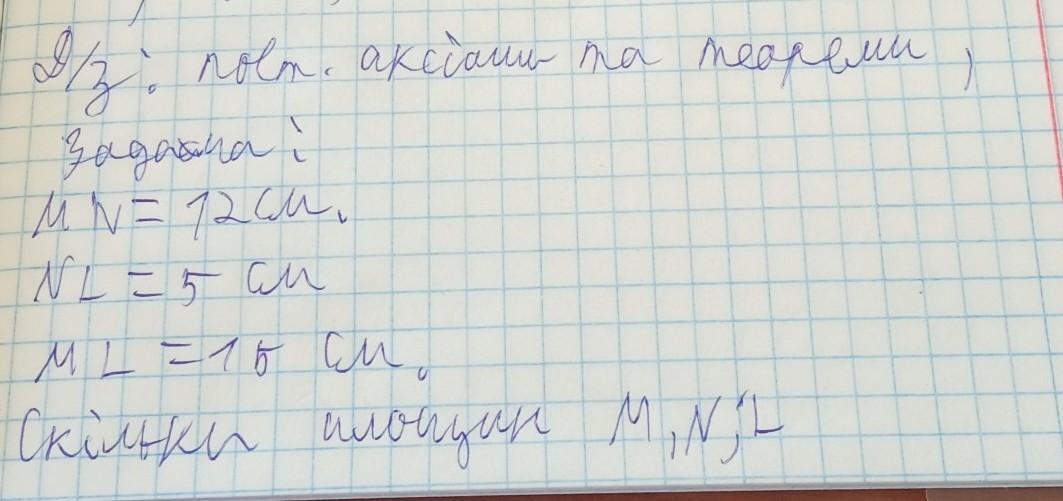 Д/з: повт. аксіоми та теореми,
Задача:
MN = 12 см.
NL = 5 см
ML = 15 см.
Скільки площин M, N, L